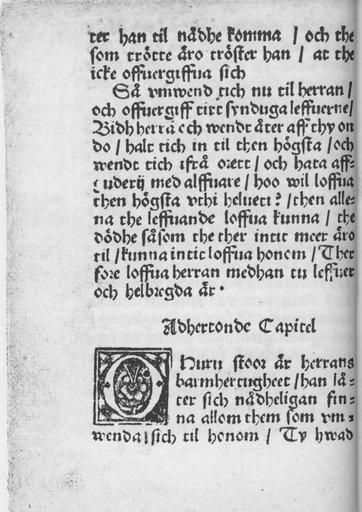 ter han til nådhe komma / och the
som trötte äro tröster han / at the
icke offuergiffua sich
Så vmwend tich nu til herran /
och offuergiff titt synduga leffuerne /
Bidh herrā och wendt åter aff thy on
do / halt tich in til then högsta / och
wendt tich ifrå orett / och hata aff=
guderij med alffuare / hoo wil loffua
then högsta vthi helueti? / then alle=
na the leffuande loffua kunna / the
dödhe såsom the ther intit meer äro
til / kunna intit loffua honom / Ther
fore loffua herran medhan tu leffuer
och helbregda är.
Adhertonde Capitel
O Huru stoor är herrans
barmhertugheet / han lä=
ter sich nådheligan fin=
na allom them som vm=
wenda sich til honom / Ty hwad